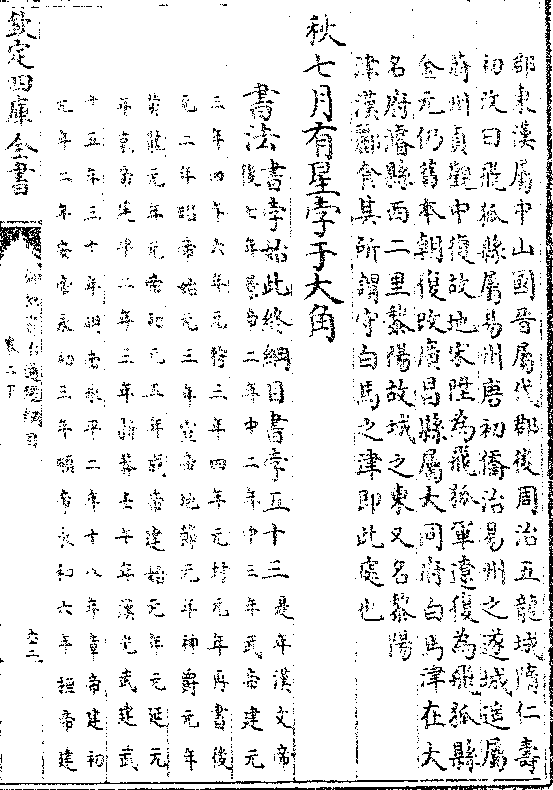 郡東漢屬中山國晉屬代郡後周治五龍城隋仁壽
初改曰飛狐縣屬易州唐初僑治易州之遂城遥屬
蔚州貞觀中復故地宋陞為飛狐軍遼復為飛狐縣
金元仍舊本朝復改廣昌縣屬大同府白馬津在大
名府濬縣西二里黎陽故城之東又名黎陽
津漢酈食其所謂守白馬之津即此處也
秋七月有星孛于大角
書法書孛始此終綱目書孛五十二是年漢文帝
後七年景帝二年中二年中三年武帝建元
三年四年六年元狩三年四年元封元年再書後
元二年昭帝始元三年宣帝地節元年神爵元年
黄龍元年元帝初元五年成帝建始元年元延元
年哀帝建平二年三年新莽壬午年漢光武建武
十五年三十年明帝永平二年十八年章帝建初
元年二年安帝永初三年順帝永和六年桓帝建
欽定四庫全書
御批資治通鑑綱目
卷二下